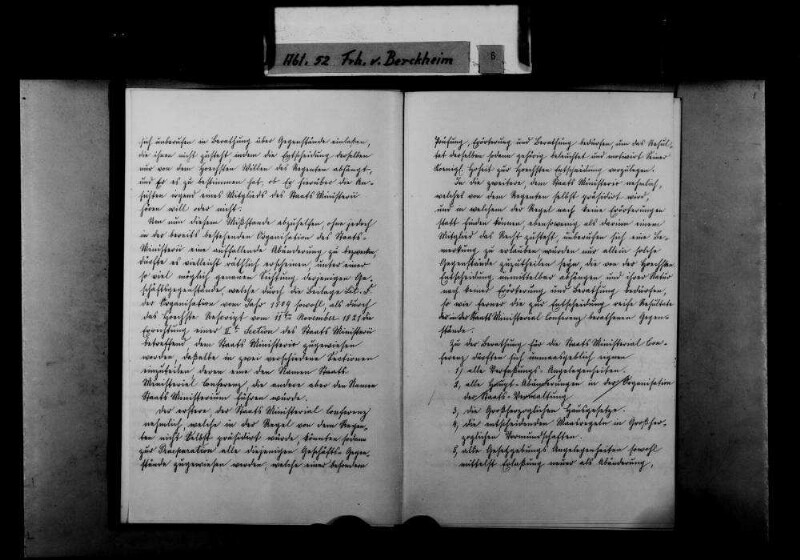 Abt. 52 Frh. v. Berckheim
6
sich unberufen in Berathung über Gegenstände einlassen,
die ihnen nicht zusteht indem die Entscheidung derselben
nur von dem höchsten Willen des Regenten abhängt,
und Er es zu bestimmen hat, ob Er hierüber die An-
sichten irgend eines Mitglieds des Staats Ministerii
hören will oder nicht.
Um nun diesem Mißstande abzuhelfen, ohne jedoch
in der bereits bestehenden Organisation des Staats-
Ministerii eine auffallende Abänderung zu bezwecken
dürfte es vielleicht räthlich erscheinen unter einer
so viel möglich genauen Sichtung derjenigen Ge-
schäftsgegenstände, welche durch die Beilage Lit. F
der Organisation vom Jahr 1809 sowohl, als durch
das höchste Rescript vom 11ten November 1821 die
Errichtung einer IIt. Section des Staats Ministerii
betreffend dem Staats Ministerio zugewiesen
worden, dasselbe in zwei verschiedene Sectionen
einzutheilen deren eine den Namen Staats
Ministerial Conferenz, die andere aber den Namen
Staats Ministerium führen würde.
Der erstere der Staats Ministerial Conferenz
nehmlich, welche in der Regel von dem Regen-
ten nicht Selbst präsidirt würde, könnten sodann
zur Präparation alle diejenigen Geschäfts-Gegen-
stände zugewiesen werden, welche einer besondern
Prüfung, Erörterung und Berathung bedürfen, um das Resul-
tat derselben sodann gehörig beleuchtet und motivirt Seiner
Königl. Hoheit zur höchsten Entscheidung vorzulegen.
In die zweitere, dem Staats Ministerio nehmlich,
welches von dem Regenten selbst präsidirt wird,
und in welchem der Regel nach keine Erörterungen
statt finden können, ebensowenig als darin einem
Mitglied das Recht zusteht, unberufen sich eine Be-
merkung zu erlauben würden nur allein solche
Gegenstände zuzutheilen seyn, die von der höchsten
Entscheidung unmittelbar abhängen und ihrer Natur
nach keine Erörterung und Berathung bedürfen,
so wie ferner die zur Entscheidung reife Resultate
der in der Staats Ministerial Conferenz berathenen Gegen-
stände.
Zu der Berathung für die Staats Ministerial Con-
ferenz dürften sich unmaasgeblich eignen
1, alle Verfassungs-Angelegenheiten.
2, alle Haupt-Abänderungen in der Organisation
der Staats-Verwaltung
3, die Großherzoglichen Hausgesetze.
4, die entscheidenden Maasregeln in Großher-
zoglichen Vormundschaften.
5, alle Gesetzgebungs Angelegenheiten sowohl
mittelst Erlassung neuer als Abänderung,